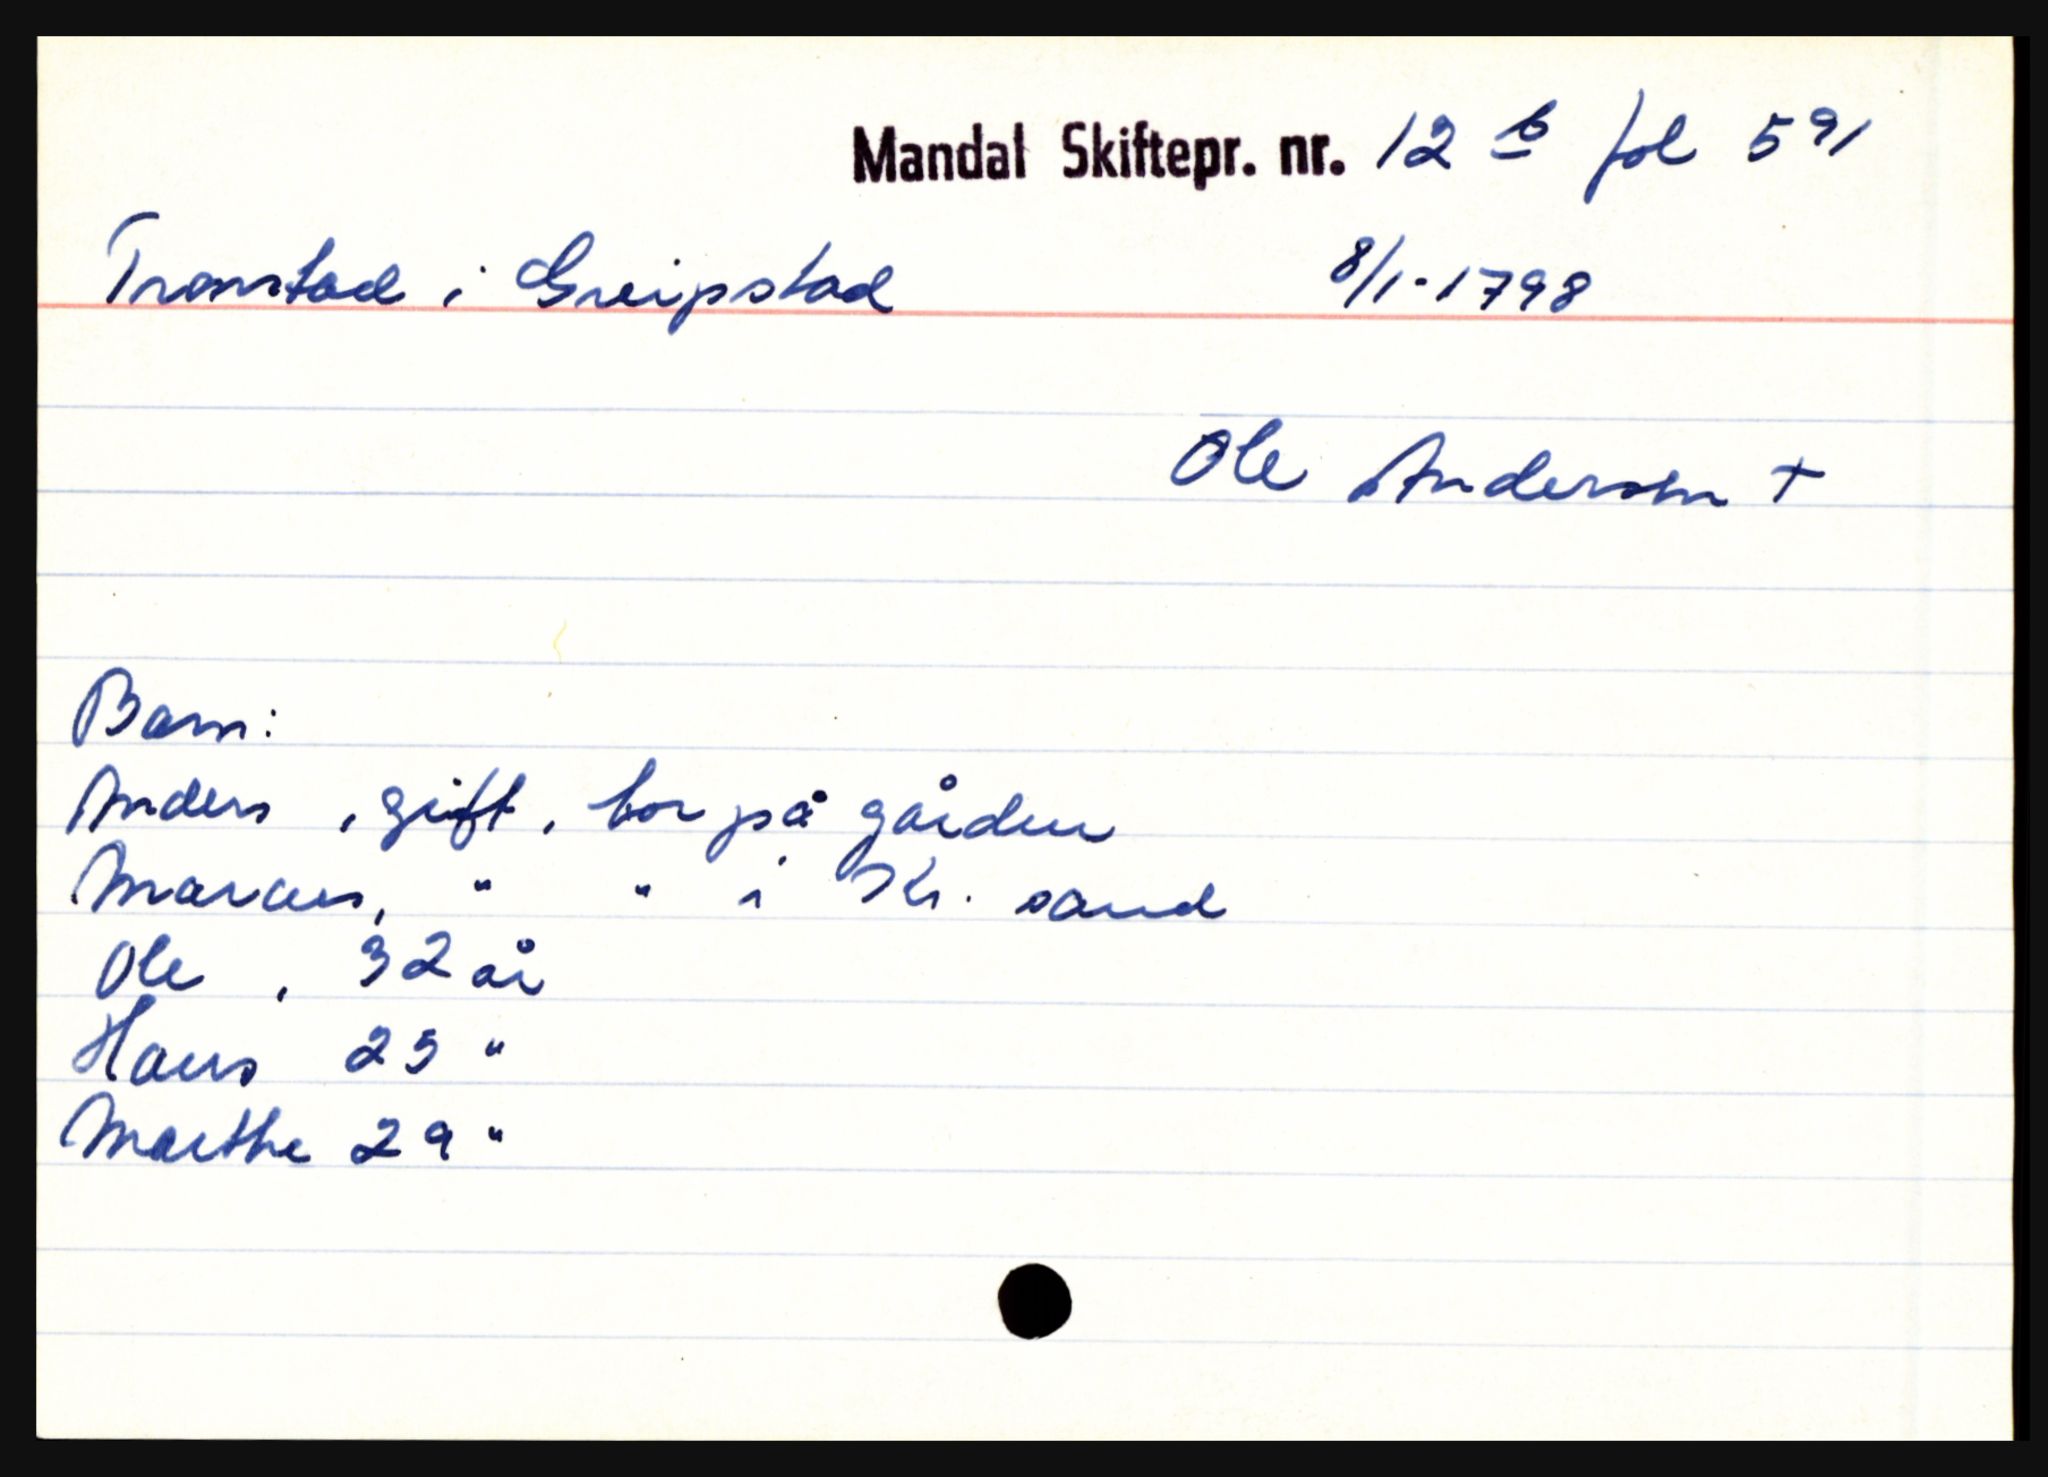 Mandal Skiftepr. nr. 12 b fol 591
Tronstad i Greipstad 8/1-1798
Ole Andersen +
Barn:
Anders , gift, bor på gården
Marcus, " " i Kr. sand
Ole , 32 år
Hans 25 "
Marthe 29 "